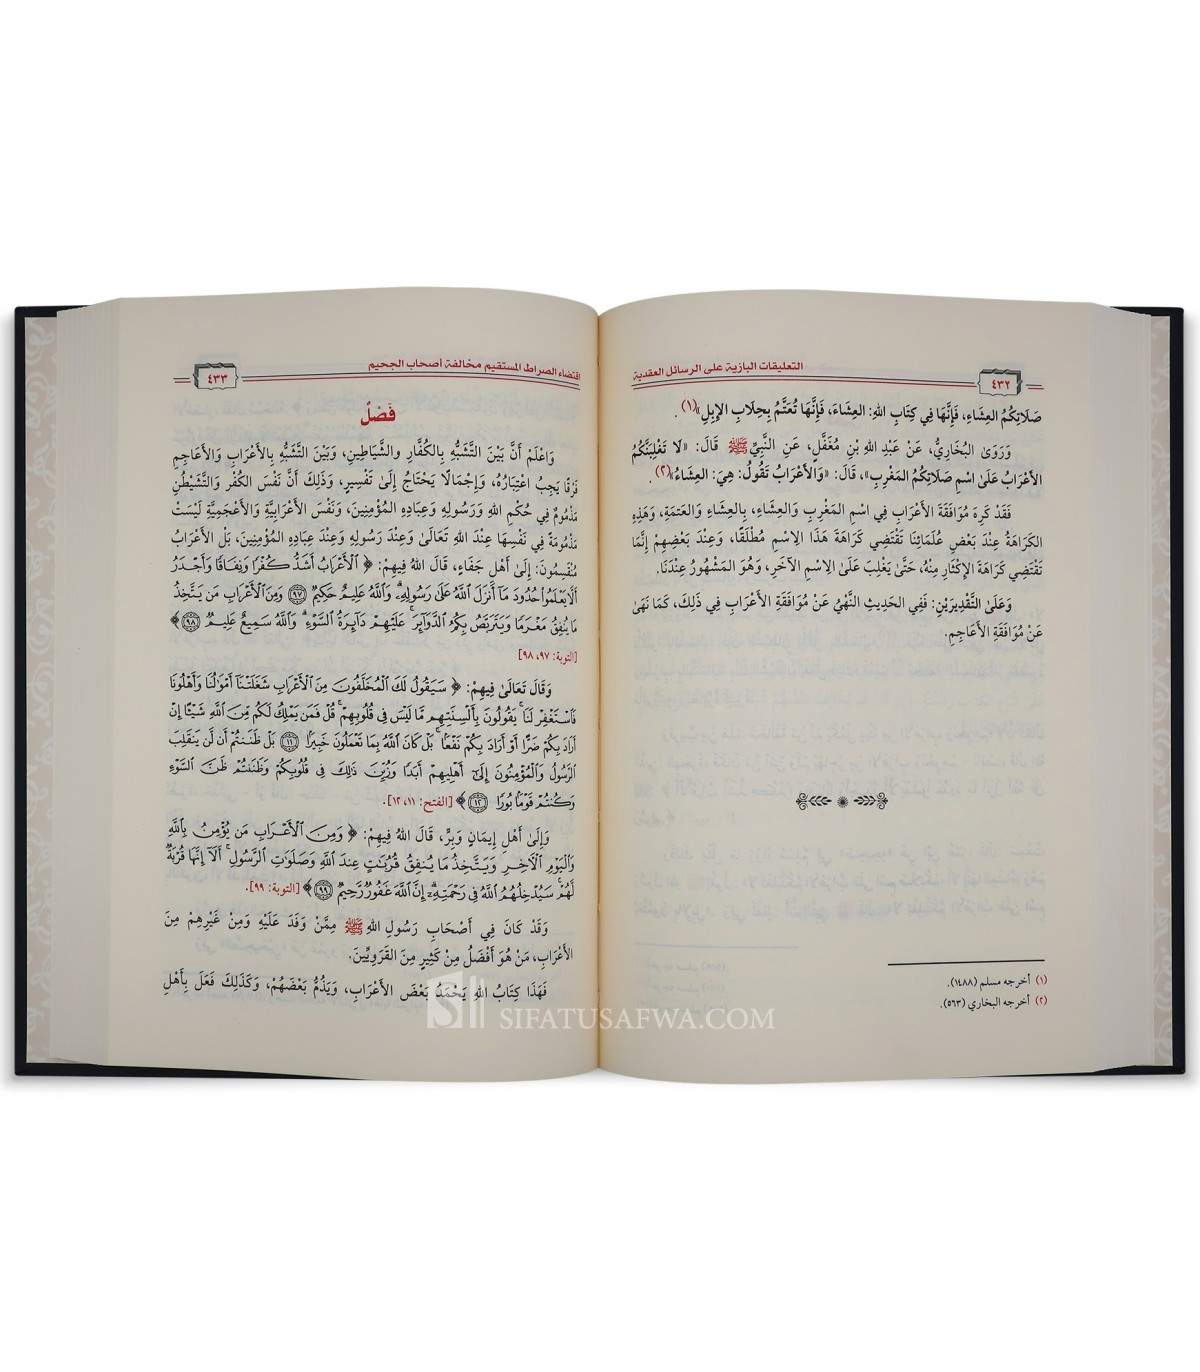 ٤٣٢
التعليقات البازية على الرسائل العقدية
صَلَاتِكُمُ العِشَاءِ، فَإِنَّهَا فِي كِتَابِ اللهِ: العِشَاءَ، فَإِنَّهَا تُعَتَّمُ بِحِلَابِ الإِبِلِ»(١).
وَرَوَى البُخَارِيُّ، عَنْ عَبْدِ اللهِ بْنِ مُغَفَّلٍ، عَنِ النَّبِيِّ ﷺ قَالَ: «لَا تَغْلِبَنَّكُمُ
الأَعْرَابُ عَلَى اسْمِ صَلَاتِكُمُ المَغْرِبِ»، قَالَ: «وَالأَعْرَابُ تَقُولُ: هِيَ: العِشَاءُ»(٢).
فَقَدْ كَرِهَ مُوَافَقَةَ الأَعْرَابِ فِي اسْمِ المَغْرِبِ وَالعِشَاءِ، بِالعِشَاءِ وَالعَتَمَةِ، وَهَذِهِ
الكَرَاهَةُ عِنْدَ بَعْضِ عُلَمَائِنَا تَقْتَضِي كَرَاهَةَ هَذَا الِاسْمِ مُطْلَقًا، وَعِنْدَ بَعْضِهِمْ إِنَّمَا
تَقْتَضِي كَرَاهَةَ الإِكْثَارِ مِنْهُ، حَتَّى يَغْلِبَ عَلَى الِاسْمِ الآخَرِ، وَهُوَ المَشْهُورُ عِنْدَنَا.
وَعَلَى التَّقْدِيرَيْنِ: فَفِي الحَدِيثِ النَّهْيُ عَنْ مُوَافَقَةِ الأَعْرَابِ فِي ذَلِكَ، كَمَا نَهَى
عَنْ مُوَافَقَةِ الأَعَاجِمِ.
(١) أخرجه مسلم (١٤٨٨).
(٢) أخرجه البخاري (٥٦٣).
اقتضاء الصراط المستقيم مخالفة أصحاب الجحيم
٤٣٣
فَصْلٌ
وَاعْلَمْ أَنَّ بَيْنَ التَّشَبُّهِ بِالكُفَّارِ والشَّيَاطِينِ، وَبَيْنَ التَّشَبُّهِ بِالأَعْرَابِ وَالأَعَاجِمِ
فَرْقًا يَجِبُ اعْتِبَارُهُ، وَإِجْمَالًا يَحْتَاجُ إِلَى تَفْسِيرٍ، وَذَلِكَ أَنَّ نَفْسَ الكُفْرِ وَالتَّشَيْطُنِ
مَذْمُومٌ فِي حُكْمِ اللهِ وَرَسُولِهِ وَعِبَادِهِ المُؤْمِنِينَ، وَنَفْسَ الأَعْرَابِيَّةِ وَالأَعْجَمِيَّةِ لَيْسَتْ
مَذْمُومَةً فِي نَفْسِهَا عِنْدَ اللهِ تَعَالَى وَعِنْدَ رَسُولِهِ وَعِنْدَ عِبَادِهِ المُؤْمِنِينَ، بَلْ الأَعْرَابُ
مُنْقَسِمُونَ: إِلَى أَهْلِ جَفَاءٍ، قَالَ اللهُ فِيهِمْ: ﴿ ٱلْأَعْرَابُ أَشَدُّ كُفْرًا وَنِفَاقًا وَأَجْدَرُ
أَلَّا يَعْلَمُوا۟ حُدُودَ مَآ أَنزَلَ ٱللَّهُ عَلَىٰ رَسُولِهِۦ ۗ وَٱللَّهُ عَلِيمٌ حَكِيمٌ ٩٧ وَمِنَ ٱلْأَعْرَابِ مَن يَتَّخِذُ
مَا يُنفِقُ مَغْرَمًا وَيَتَرَبَّصُ بِكُمُ ٱلدَّوَآئِرَ ۚ عَلَيْهِمْ دَآئِرَةُ ٱلسَّوْءِ ۗ وَٱللَّهُ سَمِيعٌ عَلِيمٌ ٩٨ ﴾
[التوبة: ٩٧، ٩٨]
وَقَالَ تَعَالَى فِيهِمْ: ﴿ سَيَقُولُ لَكَ ٱلْمُخَلَّفُونَ مِنَ ٱلْأَعْرَابِ شَغَلَتْنَآ أَمْوَٰلُنَا وَأَهْلُونَا
فَٱسْتَغْفِرْ لَنَا ۚ يَقُولُونَ بِأَلْسِنَتِهِم مَّا لَيْسَ فِى قُلُوبِهِمْ ۚ قُلْ فَمَن يَمْلِكُ لَكُم مِّنَ ٱللَّهِ شَيْـًٔا إِنْ
أَرَادَ بِكُمْ ضَرًّا أَوْ أَرَادَ بِكُمْ نَفْعًۢا ۚ بَلْ كَانَ ٱللَّهُ بِمَا تَعْمَلُونَ خَبِيرًۢا ١١ بَلْ ظَنَنتُمْ أَن لَّن يَنقَلِبَ
ٱلرَّسُولُ وَٱلْمُؤْمِنُونَ إِلَىٰٓ أَهْلِيهِمْ أَبَدًا وَزُيِّنَ ذَٰلِكَ فِى قُلُوبِكُمْ وَظَنَنتُمْ ظَنَّ ٱلسَّوْءِ
وَكُنتُمْ قَوْمًۢا بُورًا ١٢ ﴾ [الفتح: ١١، ١٢].
وَإِلَى أَهْلِ إِيمَانٍ وَبِرٍّ، قَالَ اللهُ فِيهِمْ: ﴿ وَمِنَ ٱلْأَعْرَابِ مَن يُؤْمِنُ بِٱللَّهِ
وَٱلْيَوْمِ ٱلْآخِرِ وَيَتَّخِذُ مَا يُنفِقُ قُرُبَٰتٍ عِندَ ٱللَّهِ وَصَلَوَٰتِ ٱلرَّسُولِ ۚ أَلَآ إِنَّهَا قُرْبَةٌ
لَّهُمْ ۚ سَيُدْخِلُهُمُ ٱللَّهُ فِى رَحْمَتِهِۦٓ ۗ إِنَّ ٱللَّهَ غَفُورٌ رَّحِيمٌ ٩٩ ﴾ [التوبة: ٩٩].
وَقَدْ كَانَ فِي أَصْحَابِ رَسُولِ اللهِ ﷺ مِمَّنْ وَفَدَ عَلَيْهِ وَمِنْ غَيْرِهِمْ مِنَ
الأَعْرَابِ، مَنْ هُوَ أَفْضَلُ مِنْ كَثِيرٍ مِنَ القَرَوِيِّينَ.
فَهَذَا كِتَابُ اللهِ يَحْمَدُ بَعْضَ الأَعْرَابِ، وَيَذُمُّ بَعْضَهُمْ، وَكَذَلِكَ فَعَلَ بِأَهْلِ
SIFATUSAFWA.COM